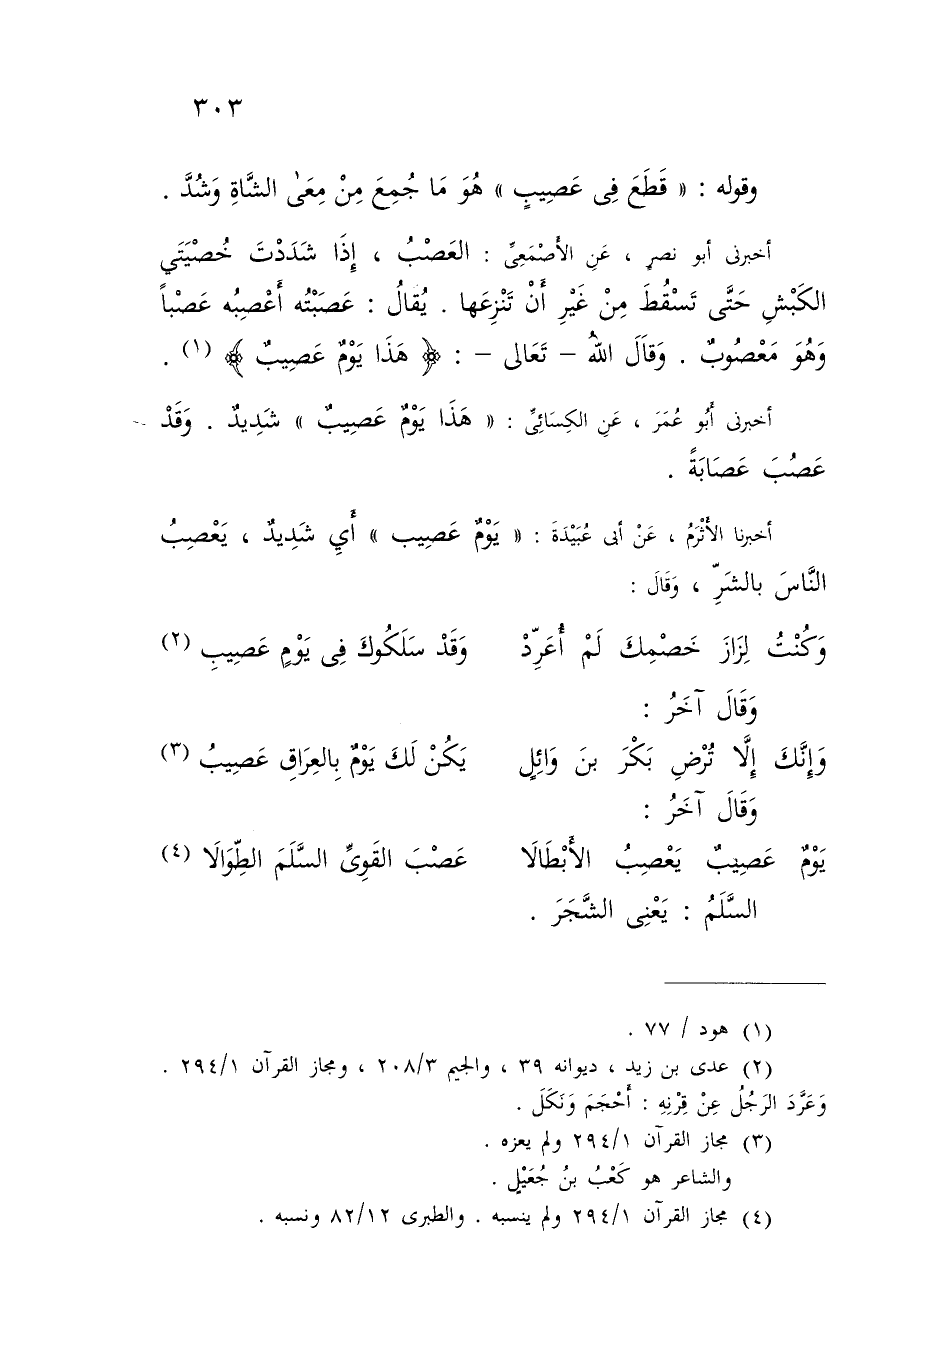 ٣٠٣
وقوله : « قَطَعَ فِى عَصِيبٍ » هُوَ مَا جُمِعَ مِنْ مِعَىٰ الشَّاةِ وَشُدَّ .
أخبرنى أبو نصرٍ ، عَنِ الأَصْمَعِىِّ : العَصْبُ ، إِذَا شَدَدْتَ خُصْيَتَي
الكَبْشِ حَتَّى تَسْقُطَ مِنْ غَيْرِ أَنْ تَنْزِعَها . يُقالُ : عَصَبْتُه أَعْصِبُه عَصْباً
وَهُوَ مَعْصُوبٌ . وَقاَلَ اللهُ – تَعَالى – : ﴿ هَذَا يَوْمٌ عَصِيبٌ ﴾ (١) .
أخبرنى أَبُو عُمَرَ ، عَنِ الكِسَائِىِّ : « هَذَا يَوْمٌ عَصِيبٌ » شَدِيدٌ . وَقَدْ
عَصُبَ عَصَابَةً .
أخبرنا الأَثْرَمُ ، عَنْ أبى عُبَيْدَةَ : « يَوْمٌ عَصِيب » أَي شَدِيدٌ ، يَعْصِبُ
النَّاسَ بالشَرِّ ، وَقَالَ :
وَكُنْتُ لِزَازَ خَصْمِكَ لَمْ أُعَرِّدْ وَقَدْ سَلَكُوكَ فِى يَوْمٍ عَصِيبِ (٢)
وَقَالَ آخَرُ :
وَإِنَّكَ إِلَّا تُرْضِ بَكْرَ بنَ وَائِلٍ يَكُنْ لَكَ يَوْمٌ بِالعِرَاقِ عَصِيبُ (٣)
وَقَالَ آخَرُ :
يَوْمٌ عَصِيبٌ يَعْصِبُ الأَبْطَالَا عَصْبَ القَوِىِّ السَّلَمَ الطِّوَالَا (٤)
السَّلَمُ : يَعْنِى الشَّجَرَ .
(١) هود / ٧٧ .
(٢) عدى بن زيد ، ديوانه ٣٩ ، والجيم ٢٠٨/٣ ، ومجاز القرآن ٢٩٤/١ .
وَعَرَّدَ الرَجُلُ عِنْ قِرْنِهِ : أَحْجَمَ وَنَكَلَ .
(٣) مجاز القرآن ٢٩٤/١ ولم يعزه .
والشاعر هو كَعْبُ بنُ جُعَيْلٍ .
(٤) مجاز القرآن ٢٩٤/١ ولم ينسبه . والطبرى ٨٢/١٢ ونسبه .